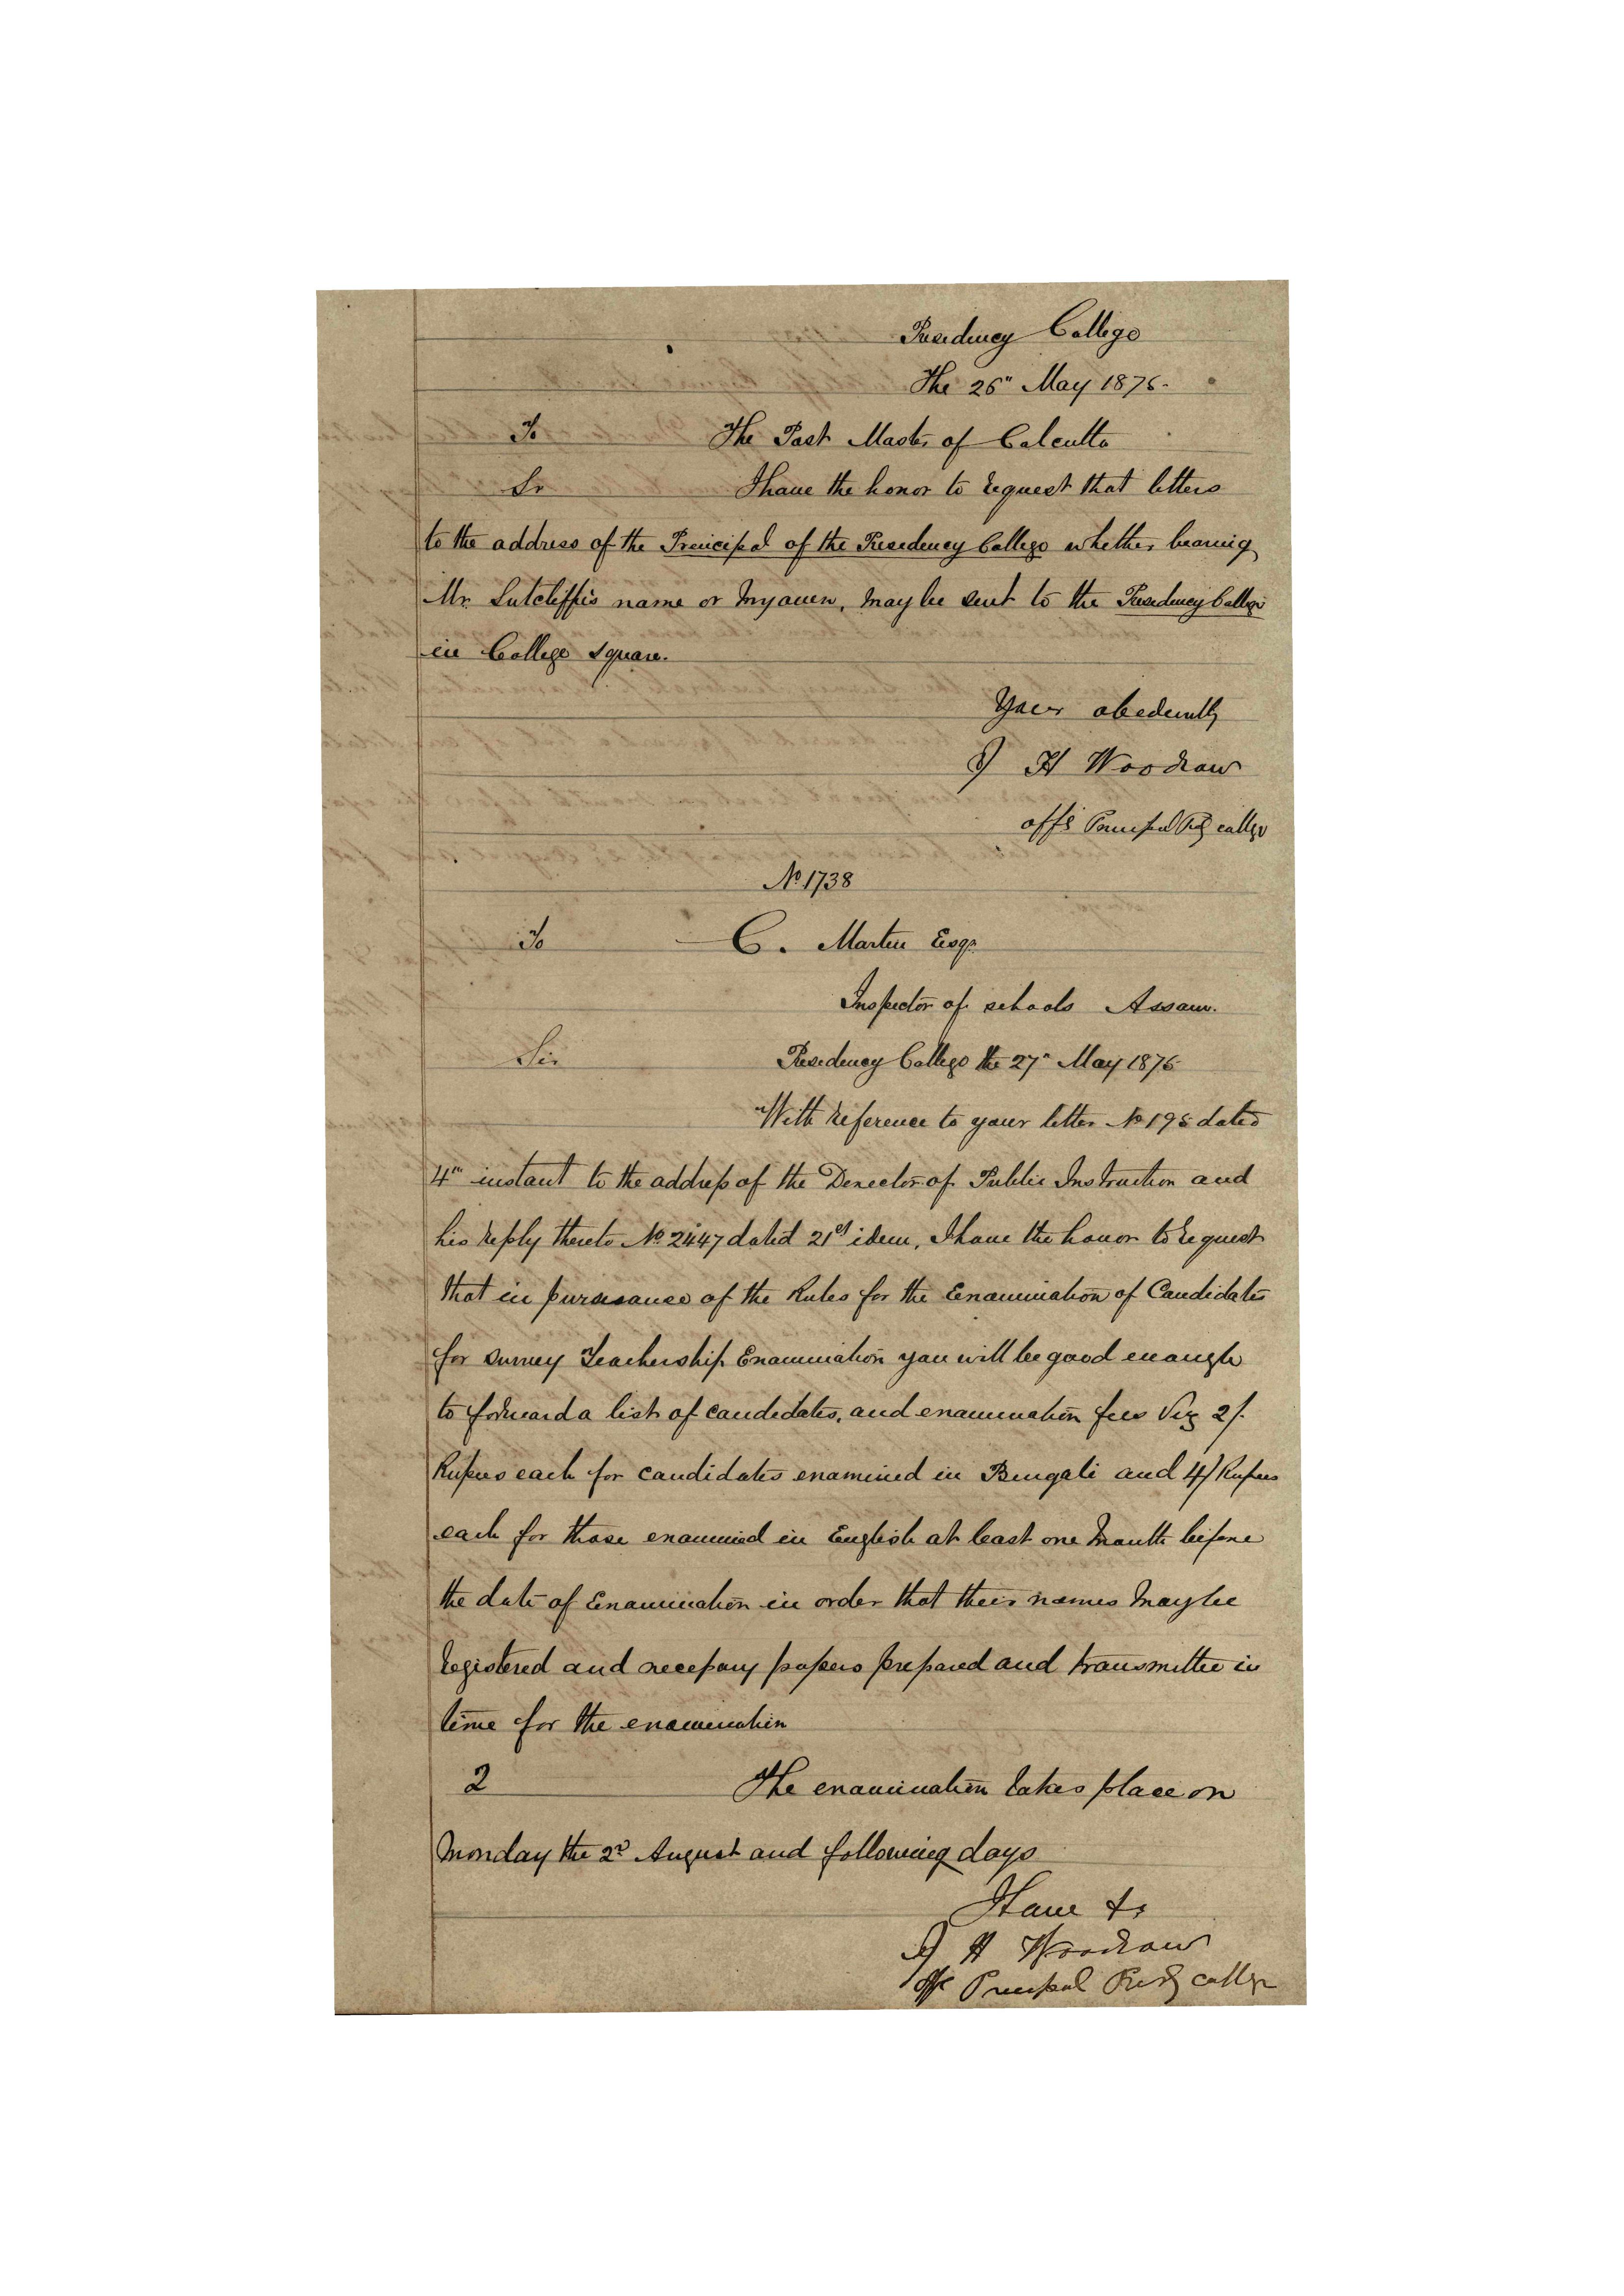 Presidency College
The 26" May 1875.
To The Post Master of Calcutta
Sir I have the honor to request that letters
to the address of the Principal of the Presidency College whether bearing
Mr. Sutcliffe's name or my own, may be sent to the Presidency College
in College Square.
Your obediently
S/ H Woodrow
offg Principal Presy College
No. 1738
To C. Martin Esqr.
Inspector of schools Assam.
Sir Presidency College the 27" May 1875
With reference to your letter No 195 dated
4th instant to the address of the Director of Public Instruction and
his reply thereto No 2447 dated 21st idem, I have the honor to request
that in pursuance of the Rules for the Examination of Candidates
for Survey Teachership Examination you will be good enough
to forward a list of candidates, and examination fees Viz 2/.
Rupees each for candidates examined in Bengali and 4/ Rupees
each for those examined in English at least one month before
the date of Examination in order that their names may be
registered and necessary papers prepared and transmitted in
time for the examination
2 The examination takes place on
Monday the 2nd August and following days
I have &c
S/ H Woodrow
Offg Principal Presy College